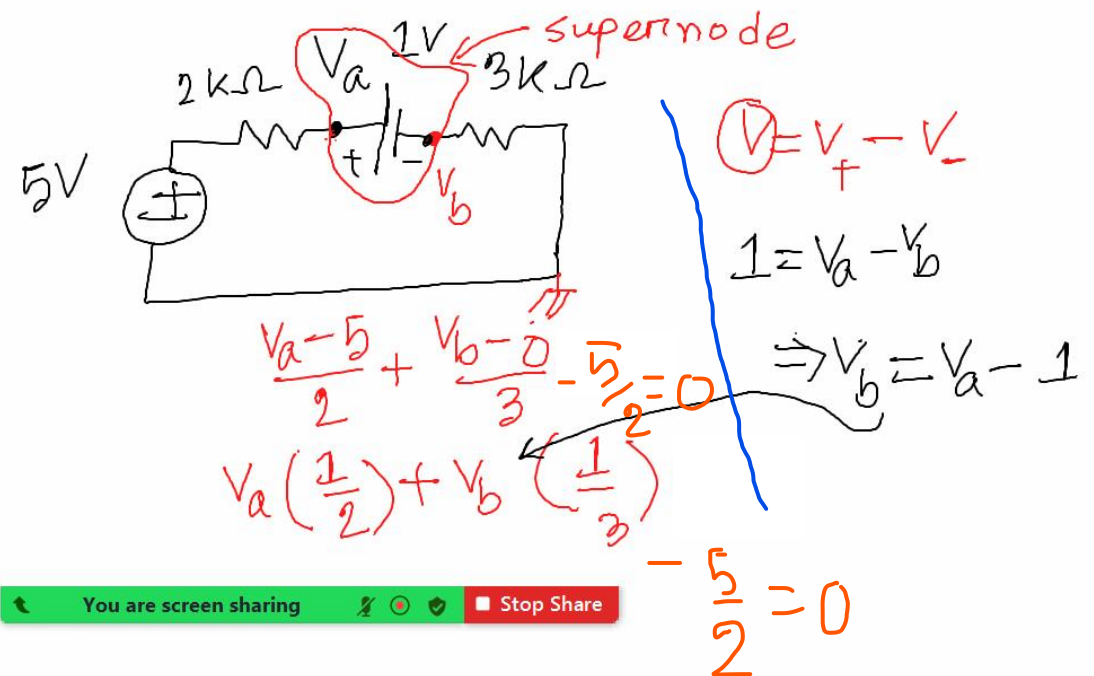 supernode
1V
Va
2KΩ
3KΩ
5V
+ -
Vb
V = V+ - V-
1 = Va - Vb
⇒ Vb = Va - 1
(Va - 5)/2 + (Vb - 0)/3 - 5/2 = 0
Va (1/2) + Vb (1/3)
- 5/2 = 0
You are screen sharing
Stop Share